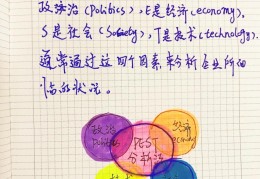 政治(Politics),E是经济(economy),
S是社会(Society),T是技术(technology).
通常通过这四个因素来分析企业所面
临的状况。
政治
Politics
经济
economy
PEST
分析法
技术